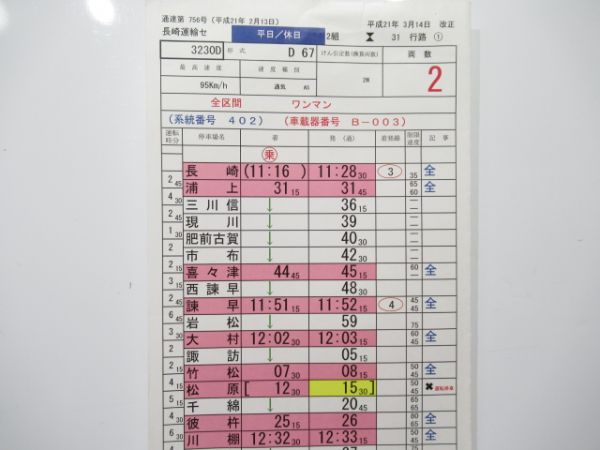 通達第 756号 (平成21年 2月13日) 平成21年 3月14日 改正
長崎運輸セ 平日/休日 2組 31 行路 ①
3230D 形式 D 67 けん引定数(換算両数) 両数
最高速度 速度種別 2
95Km/h 通気
全区間 ワンマン
(系統番号 402) (車載器番号 B-003)
運転時分 停車場名 着 発 (通) 着発線 制限速度 記事
乗
長崎 (11:16 ) 11:28 30 3 35 全
2 45 浦上 31 15 31 45 65 60 全
4 30 三川信 ↓ 36 15 一
2 45 現川 ↓ 39 一
1 30 肥前古賀 ↓ 40 30 一
2 市布 ↓ 42 30 一
2 15 喜々津 44 45 45 15 60 一 全
3 15 西諫早 ↓ 48 30
2 45 諫早 11:51 15 11:52 15 4 45 45 全
6 45 岩松 ↓ 59 75
3 30 大村 12:02 30 12:03 15 60 45 全
2 諏訪 ↓ 05 15
2 15 竹松 07 30 08 15 50 45 全
4 15 松原 [ 12 30 15 30 ] 50 45 ✖ 運転停車
5 15 千綿 ↓ 20 45 65 65
4 30 彼杵 25 15 26 80 60 全
6 30 川棚 12:32 30 12:33 15 80 全